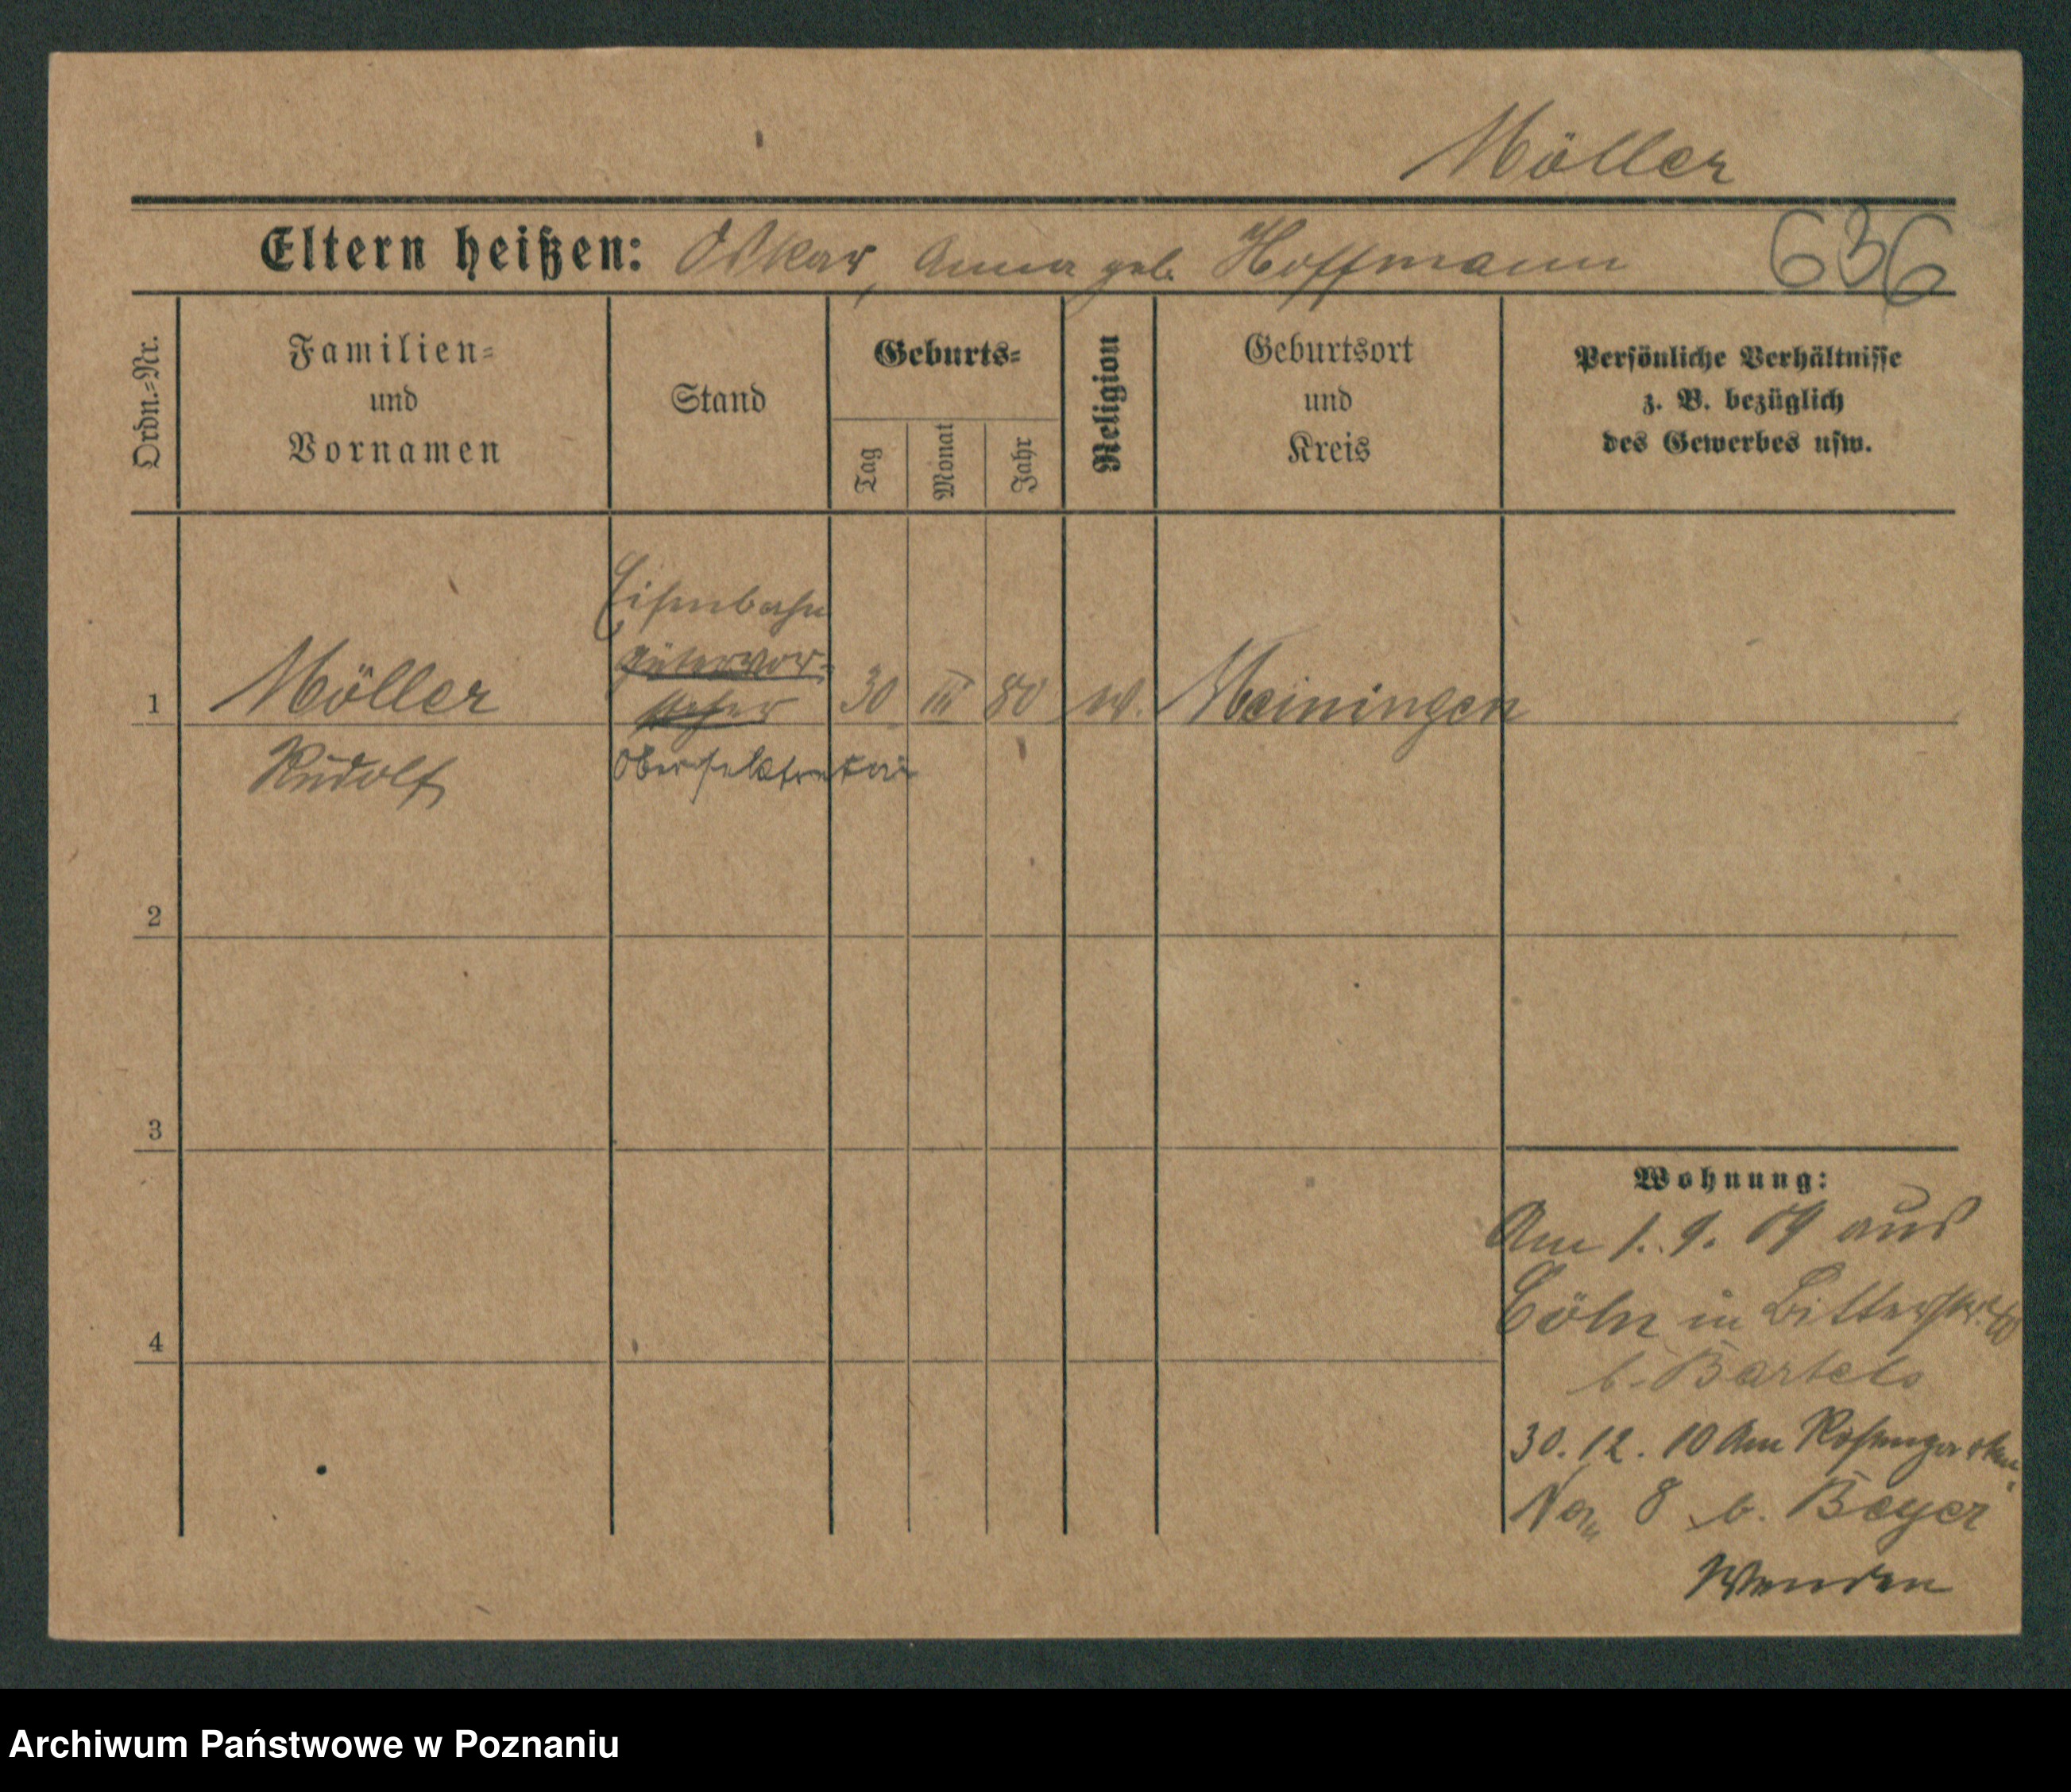 Möller
Eltern heißen: Oskar, Anna geb. Hoffmann 636
Ordn.=Nr.
Familien=
und
Vornamen
Stand
Geburts=
Tag
Monat
Jahr
Religion
Geburtsort
und
Kreis
Persönliche Verhältnisse
z. B. bezüglich
des Gewerbes usw.
Eisenbahn
Gütervor-
steher
1 Möller 30 III 80 Meiningen
Rudolf Obersekretär
2
3
4
Wohnung:
Am 1. 9. 09 aus
Cöln in Bitterstr.
b. Bartels
30. 12. 10 Am Rosengarten
No. 8 b. Beyer
Wenden
Archiwum Państwowe w Poznaniu